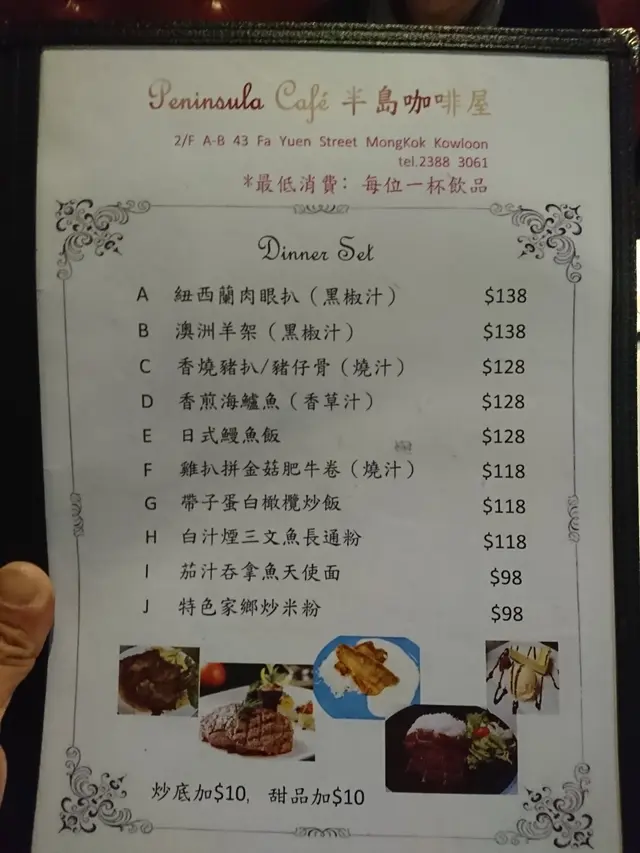 Peninsula Café 半島咖啡屋
2/F A-B 43 Fa Yuen Street MongKok Kowloon
tel.2388 3061
*最低消費：每位一杯飲品
Dinner Set
A 紐西蘭肉眼扒（黑椒汁） $138
B 澳洲羊架（黑椒汁） $138
C 香燒豬扒/豬仔骨（燒汁） $128
D 香煎海鱸魚（香草汁） $128
E 日式鰻魚飯 $128
F 雞扒拼金菇肥牛卷（燒汁） $118
G 帶子蛋白橄欖炒飯 $118
H 白汁煙三文魚長通粉 $118
I 茄汁吞拿魚天使面 $98
J 特色家鄉炒米粉 $98
炒底加$10, 甜品加$10